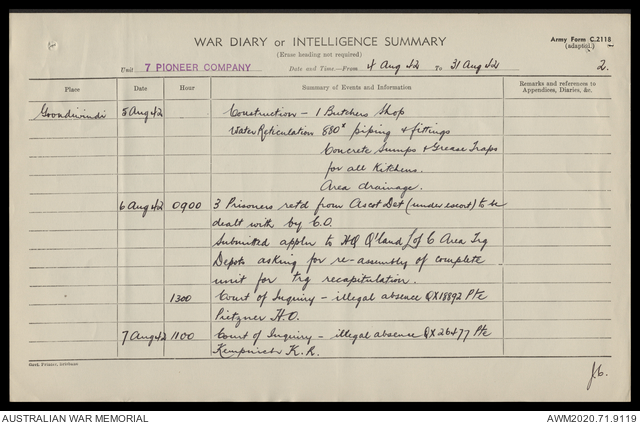 WAR DIARY or INTELLIGENCE SUMMARY
(Erase heading not required)
Army Form C.2118
(adaption.)
2.
Unit 7 PIONEER COMPANY Date and Time.—From 4 Aug 42 To 31 Aug 42
Place Date Hour Summary of Events and Information Remarks and references to Appendices, Diaries, &c.
Goondiwindi 5 Aug 42 Construction – 1 Butchers Shop
Water Reticulation 880ˣ piping & fittings
Concrete Sumps & Grease Traps
for all Kitchens.
Area drainage.
6 Aug 42 0900 3 Prisoners retd from Ascot Det (under escort) to be
dealt with by C.O.
Submitted appln to HQ Q'land L of C Area Trg
Depots asking for re-assembly of complete
unit for trg recapitulation.
1300 Court of Inquiry – illegal absence QX18892 Pte
Pietzner H.O.
7 Aug 42 1100 Court of Inquiry – illegal absence QX26477 Pte
K.R.
Govt. Printer, Brisbane
AUSTRALIAN WAR MEMORIAL
AWM2020.71.9119